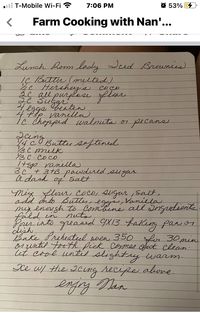 T-Mobile Wi-Fi 7:06 PM 53%
Farm Cooking with Nan'...
Lunch Room lady Iced Brownies
1c Butter (melted)
Hershey's coco
2c all purpose flour
2c Sugar
4 eggs beaten
4 tsp vanilla
1c chopped walnuts or pecans
Icing
1/4 c Butter softened
milk
coco
1 tsp vanilla
3 c + 3 TB powdered sugar
a dash of salt
Mix flour, coco, sugar, salt,
add into butter, eggs, vanilla
mix enough to combine all ingredients
fold in nuts
Pour into greased 9x13 baking pan or
dish
Bake Preheated oven 350 for 30 min
or until tooth pick comes out clean
let cool until slightly warm
Ice w/ the Icing recipe above
enjoy Nan